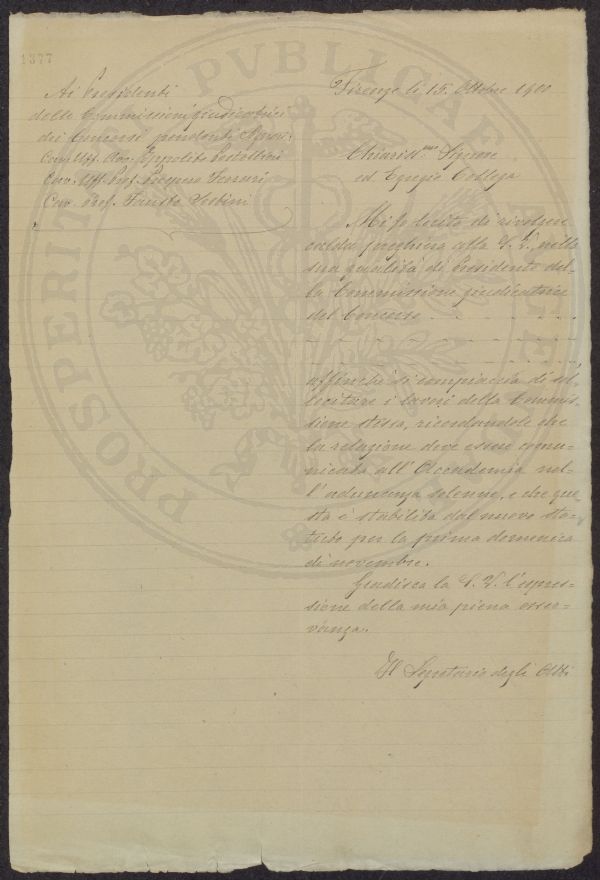 1377
Ai Presidenti
delle Commissioni giudicatrici
dei Concorsi pendenti Signori:
Com. Uff. Avv. Ippolito Pestellini
Cav. Uff. Prof. Prospero Ferrari
Cav. Prof. Fausto Sestini
Firenze li 15 Ottobre 1900
Chiariss.mo Signore
ed Egregio Collega
Mi fo lecito di rivolgere
calda preghiera alla S. V., nella
sua qualità di Presidente del-
la Commissione giudicatrice
del Concorso
affinchè si compiaccia di sol-
lecitare i lavori della Commis-
sione stessa, ricordandole che
la relazione deve essere comu-
nicata all'Accademia nel-
l'adunanza solenne, e che que-
sta è stabilita dal nuovo sta-
tuto per la prima domenica
di novembre.
Gradisca la S. V. l'espres-
sione della mia piena osser-
vanza.
Il Segretario degli Atti
PROSPERITATI PVBLICAE